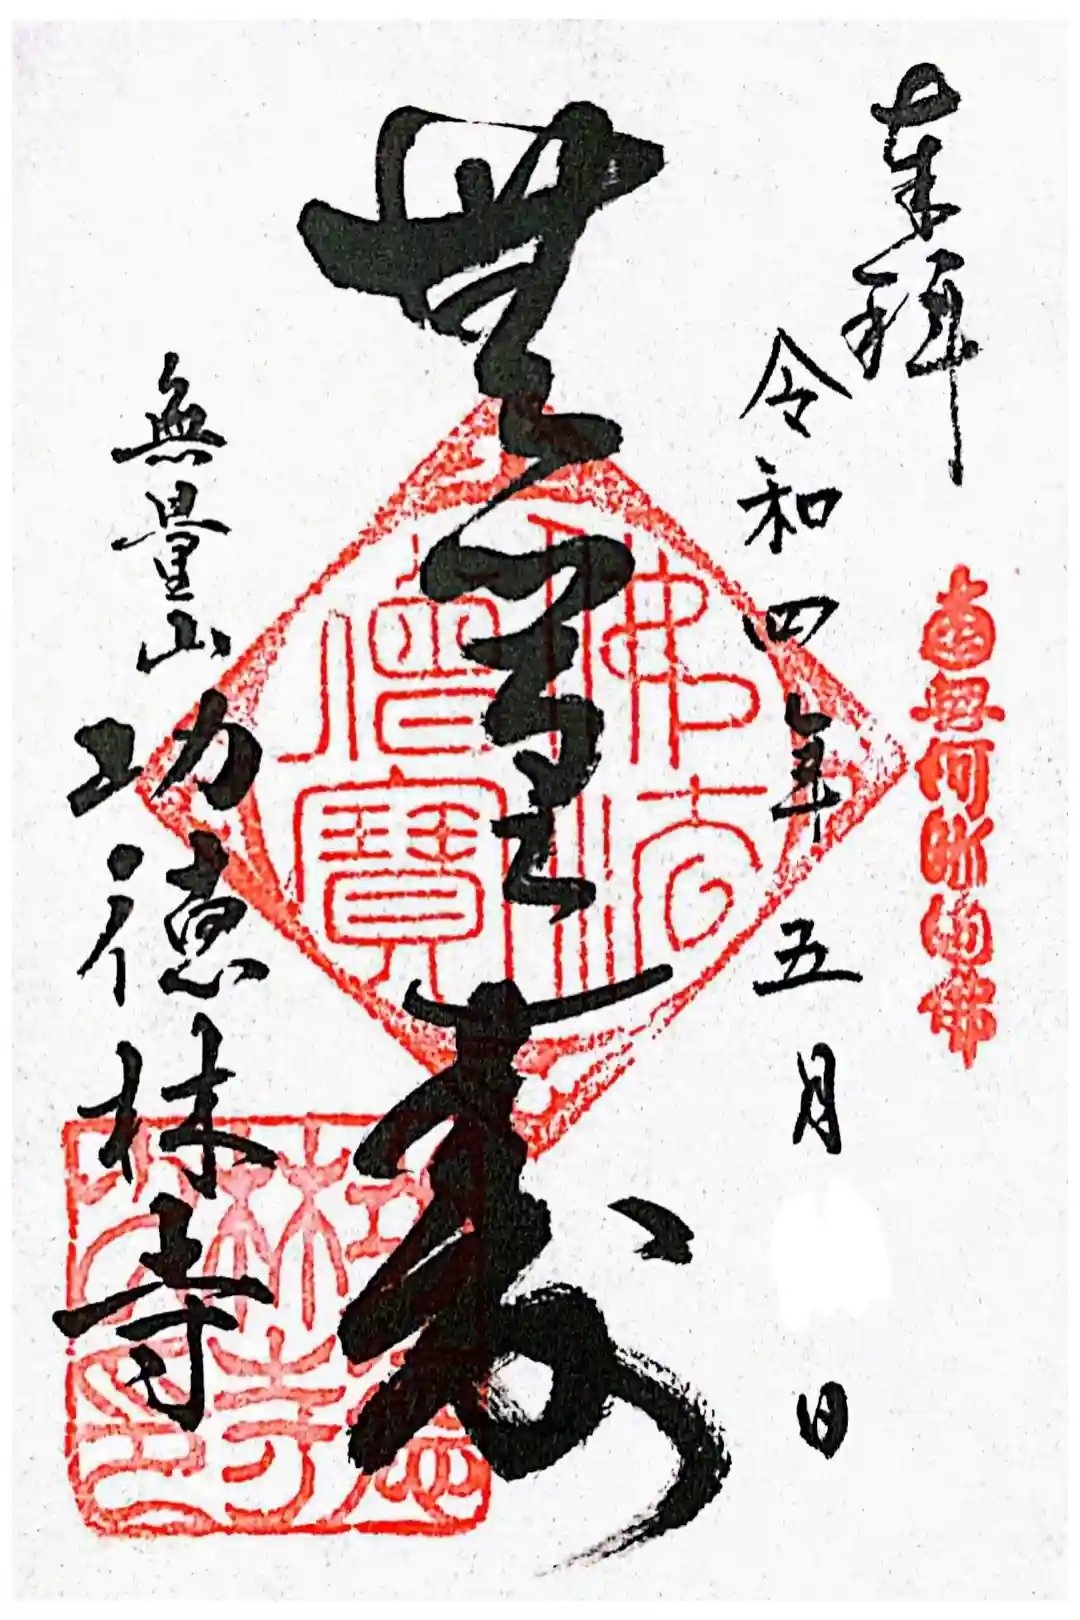 奉拝
令和四年五月 日
南無阿弥陀佛
無量寿
佛法
僧寳
無量山
功徳林寺